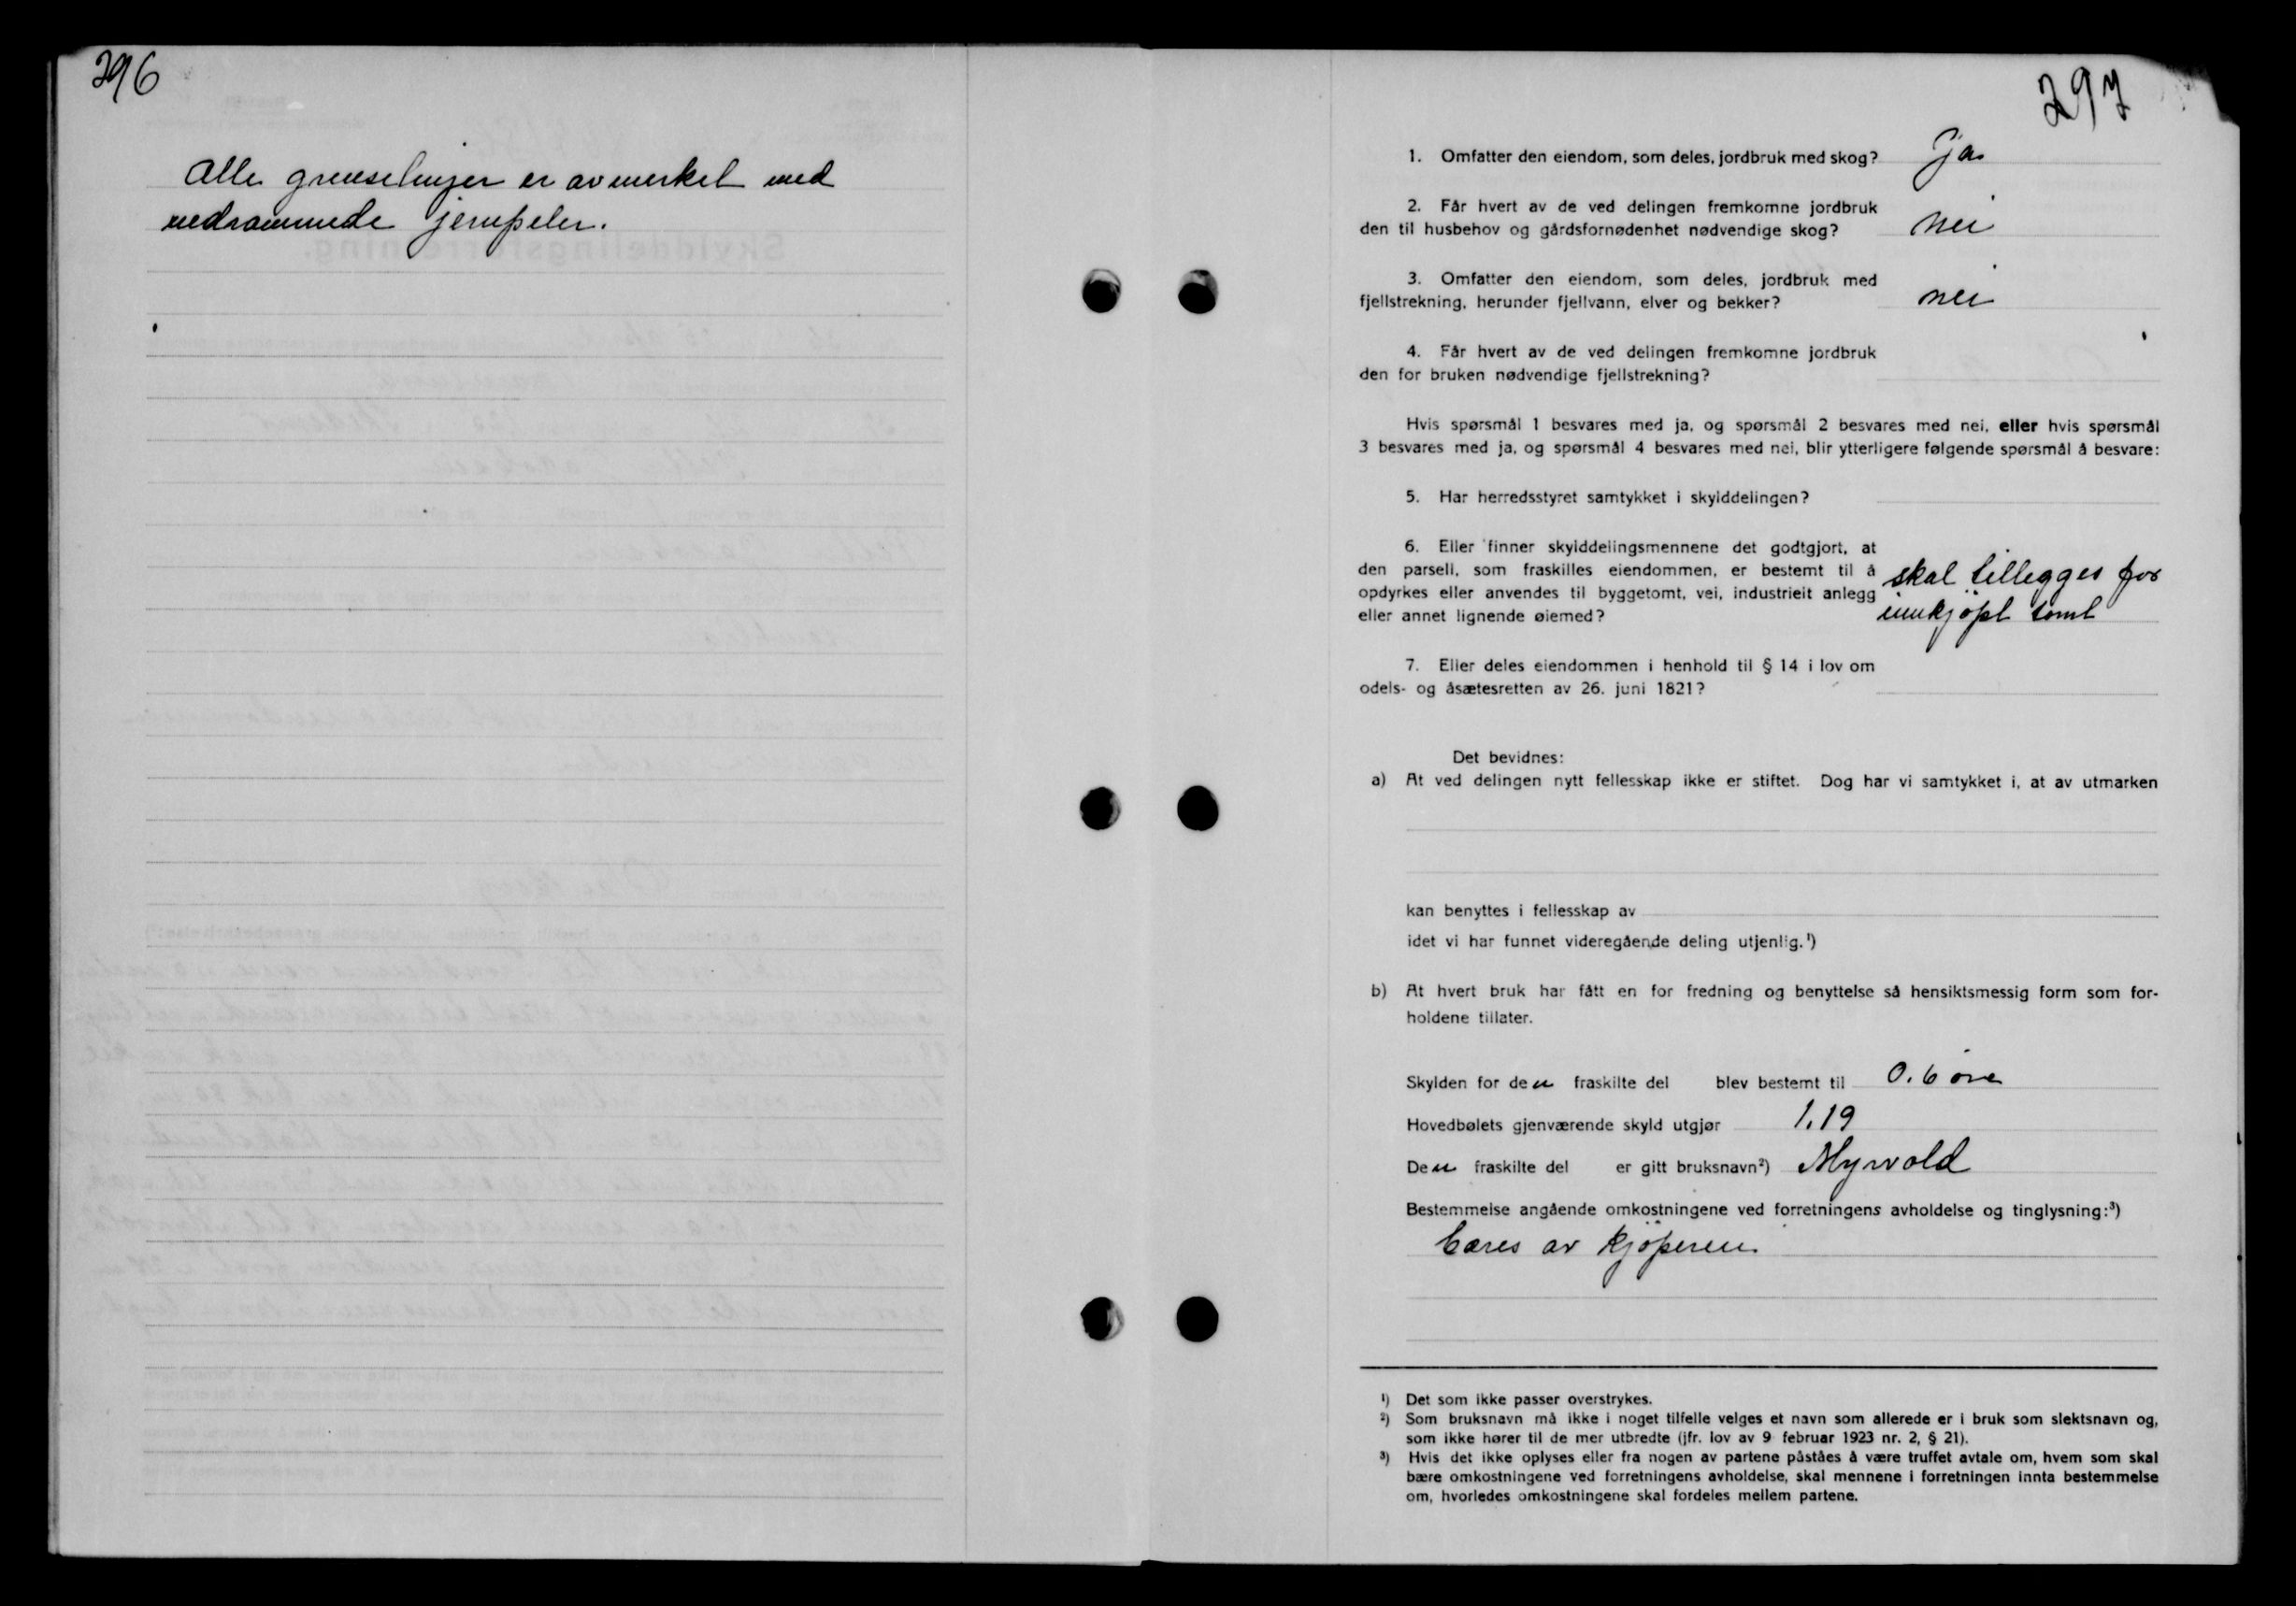 296
Alle grenselinjer er avmerket med
nedrammede jernpeler.
297
1. Omfatter den eiendom, som deles, jordbruk med skog? Ja
2. Får hvert av de ved delingen fremkomne jordbruk
den til husbehov og gårdsfornødenhet nødvendige skog? nei
3. Omfatter den eiendom, som deles, jordbruk med
fjellstrekning, herunder fjellvann, elver og bekker? nei
4. Får hvert av de ved delingen fremkomne jordbruk
den for bruken nødvendige fjellstrekning?
Hvis spørsmål 1 besvares med ja, og spørsmål 2 besvares med nei, eller hvis spørsmål
3 besvares med ja, og spørsmål 4 besvares med nei, blir ytterligere følgende spørsmål å besvare:
5. Har herredsstyret samtykket i skylddelingen?
6. Eller finner skylddelingsmennene det godtgjort, at
den parsell, som fraskilles eiendommen, er bestemt til å skal tillegges før
opdyrkes eller anvendes til byggetomt, vei, industrielt anlegg
eller annet lignende øiemed? innkjöpt tomt
7. Eller deles eiendommen i henhold til § 14 i lov om
odels- og åsætesretten av 26. juni 1821?
Det bevidnes:
a) At ved delingen nytt fellesskap ikke er stiftet. Dog har vi samtykket i, at av utmarken
kan benyttes i fellesskap av
idet vi har funnet videregående deling utjenlig.¹)
b) At hvert bruk har fått en for fredning og benyttelse så hensiktsmessig form som for-
holdene tillater.
Skylden for den fraskilte del blev bestemt til 0.6 øre
Hovedbølets gjenværende skyld utgjør 1.19
Den fraskilte del er gitt bruksnavn²) Myrvold
Bestemmelse angående omkostningene ved forretningens avholdelse og tinglysning:³)
bæres av kjöperen
¹) Det som ikke passer overstrykes.
²) Som bruksnavn må ikke i noget tilfelle velges et navn som allerede er i bruk som slektsnavn og,
som ikke hører til de mer utbredte (jfr. lov av 9 februar 1923 nr. 2, § 21).
³) Hvis det ikke oplyses eller fra nogen av partene påståes å være truffet avtale om, hvem som skal
bære omkostningene ved forretningens avholdelse, skal mennene i forretningen innta bestemmelse
om, hvorledes omkostningene skal fordeles mellem partene.